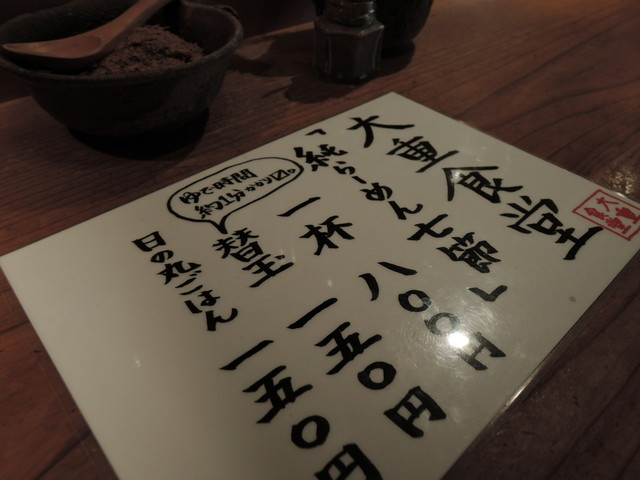 大重食堂
「純らーめん七節」
一杯 八〇〇円
替玉 一五〇円
ゆで時間
約1分かかり〼。
日の丸ごはん 一五〇円